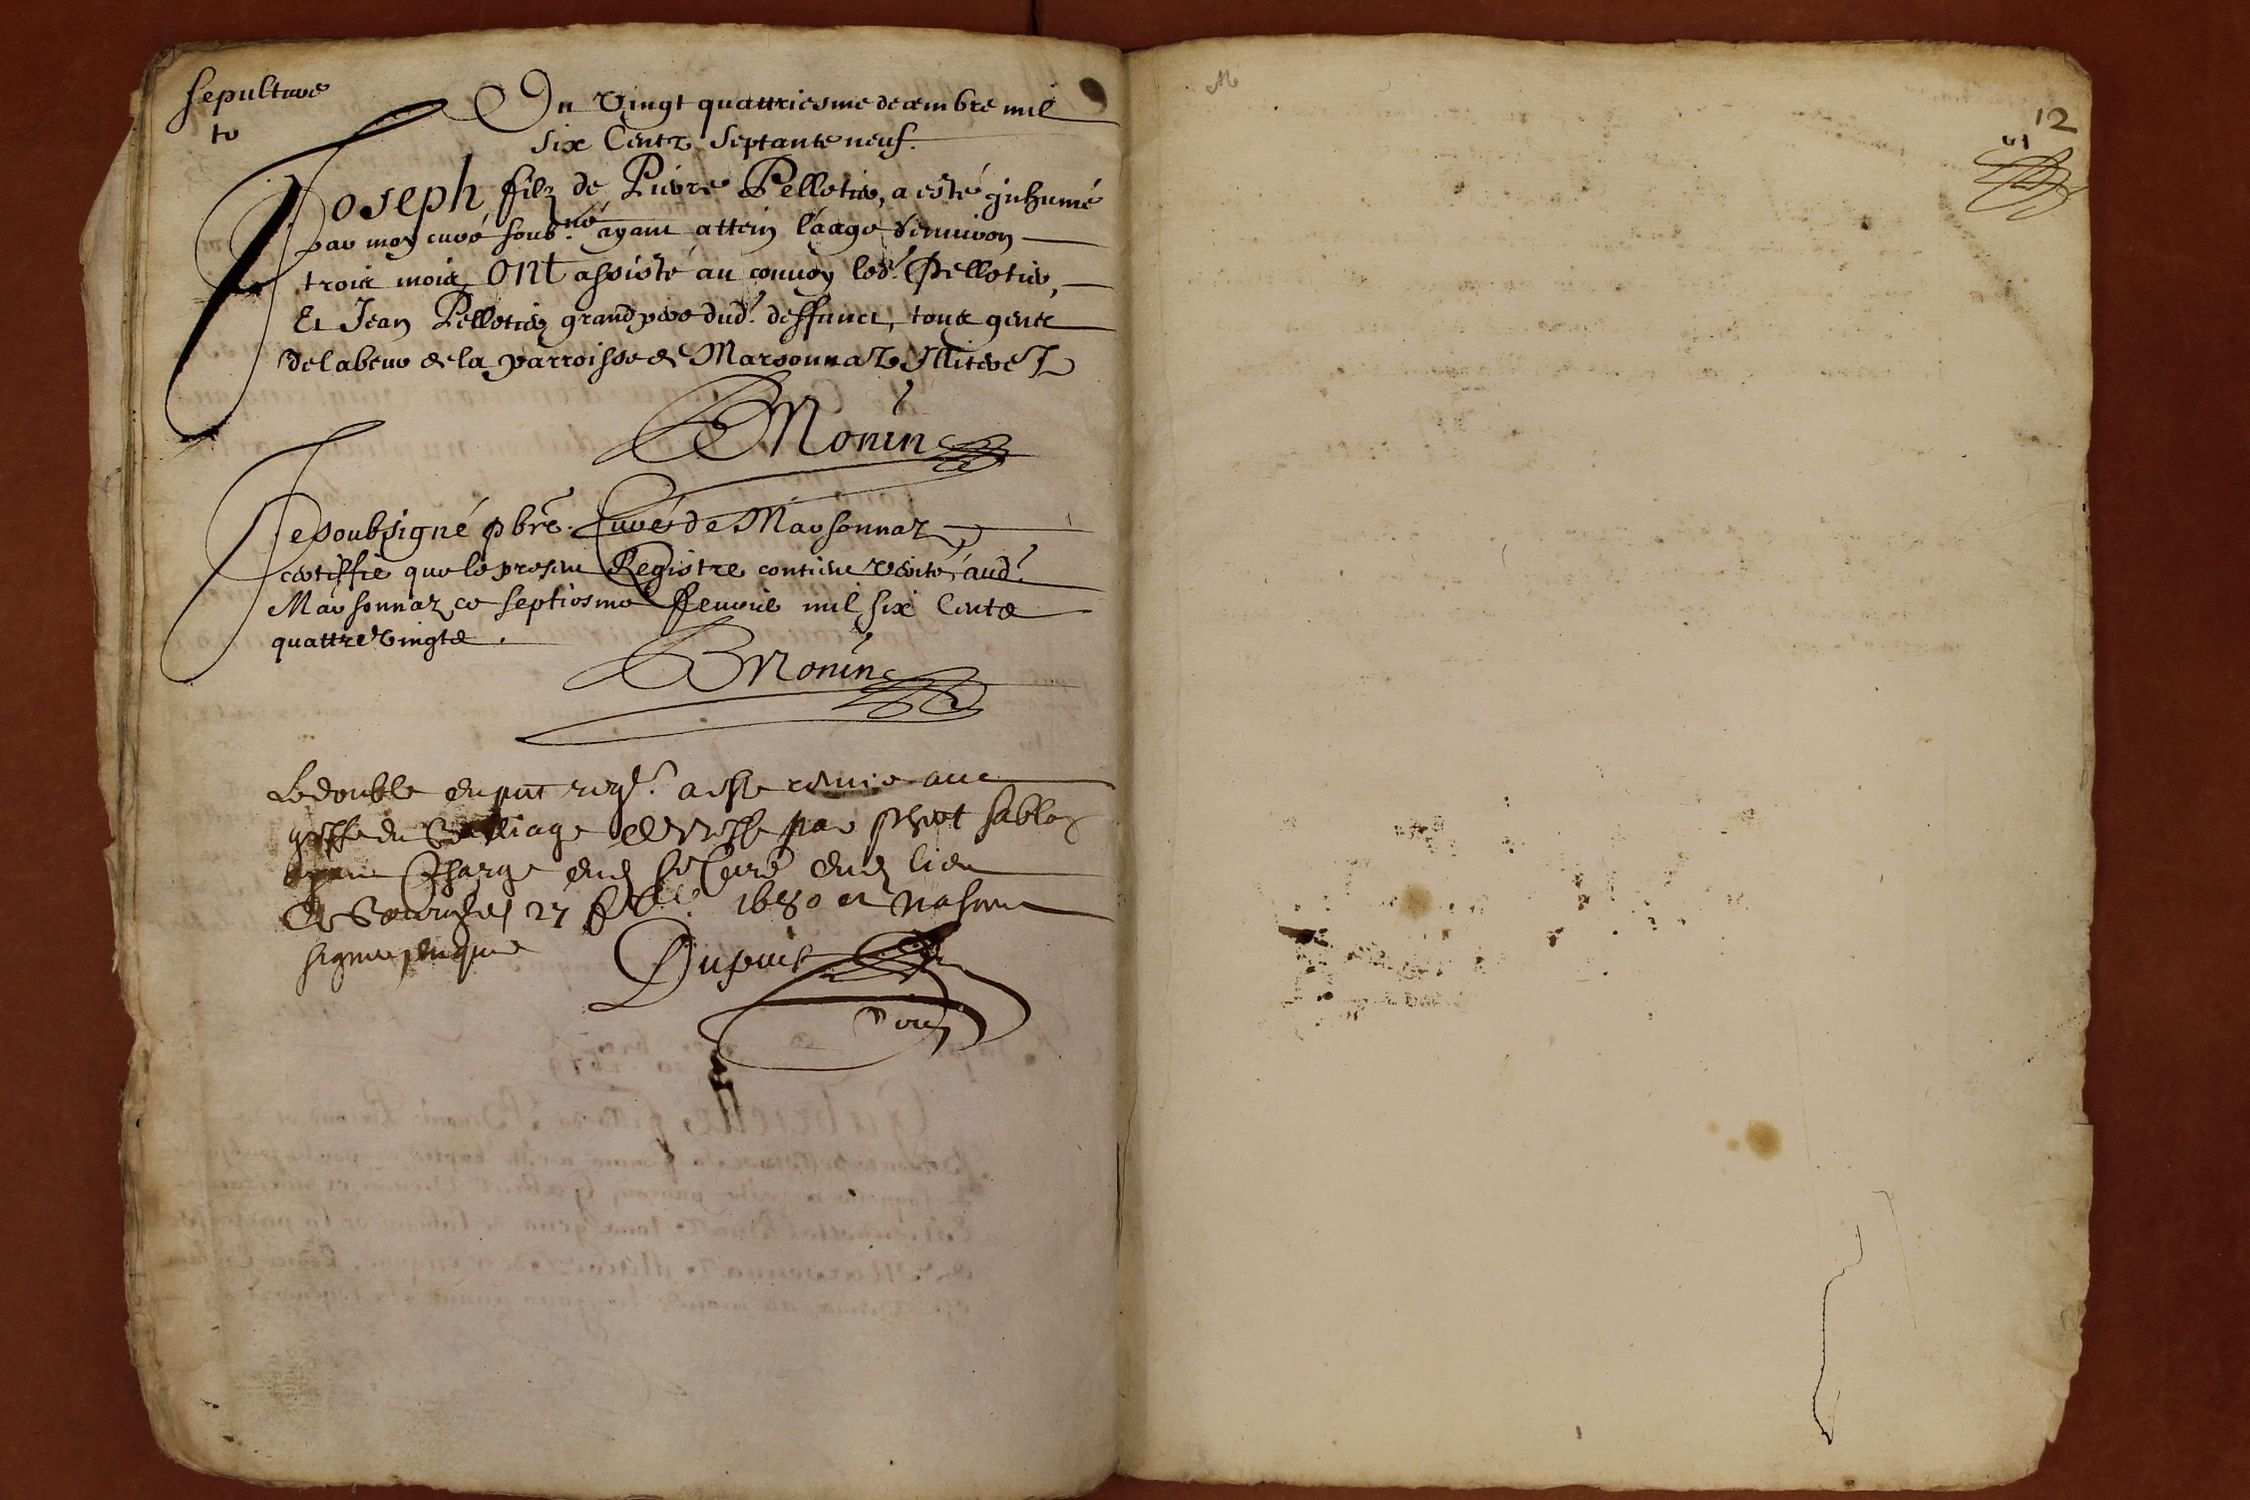 Sepulture
Du Vingt quattriesme decembre mil
six Centz Septante neuf.
Joseph filz de Pierre Pelletier, a esté inhumé
par moy curé soubné ayant attein l'aage d'enuiron
trois mois, Ont assisté au conuoy led. Pelletier,
Et Jean Pelletier grand pere dud. deffunct, tous gents
de labeur de la parroisse de Marsonnaz Illiterez
BMonin
Je soubsigné pbre. Curé de Marsonnaz
certiffie que le present Registre contient verité, aud.
Marsonnaz ce septiesme feurier mil six Cents
quattre Vingts.
BMonin
Le double du pnt regre. a esté remis au
greffe du Bailliage de Bresse par
ayant Charge dud. Sr Curé dud. lieu
A Bourg le 27 1680 et
signe enquis
Dupuis
12